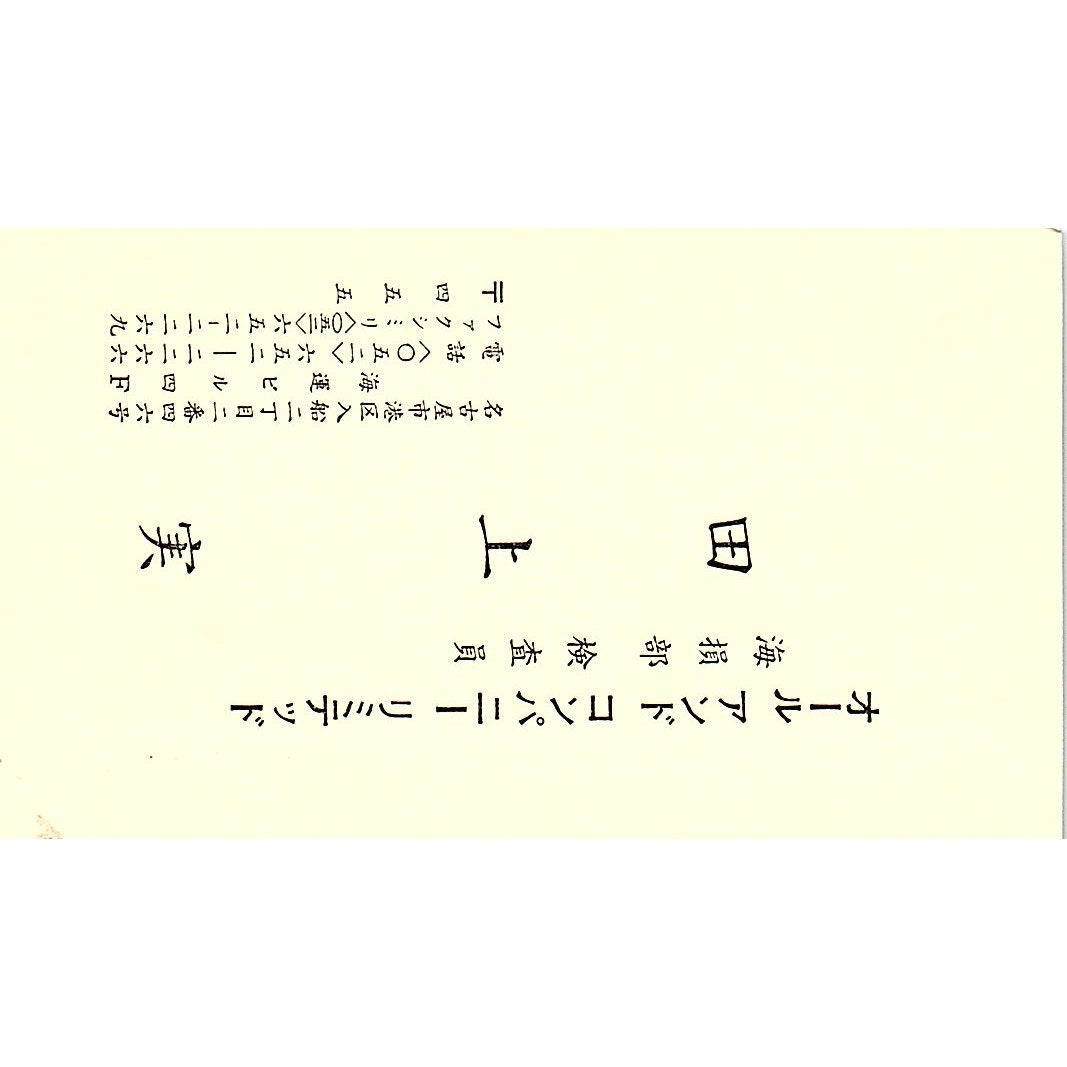 オール アンド コンパニー リミテッド
海損部 検査員
田上実
名古屋市港区入船二丁目二番四六号
海運ビル四F
電話〈〇五二〉六五二―二二六六
ファクシミリ〈〇五二〉六五二―二二六九
〒四五五